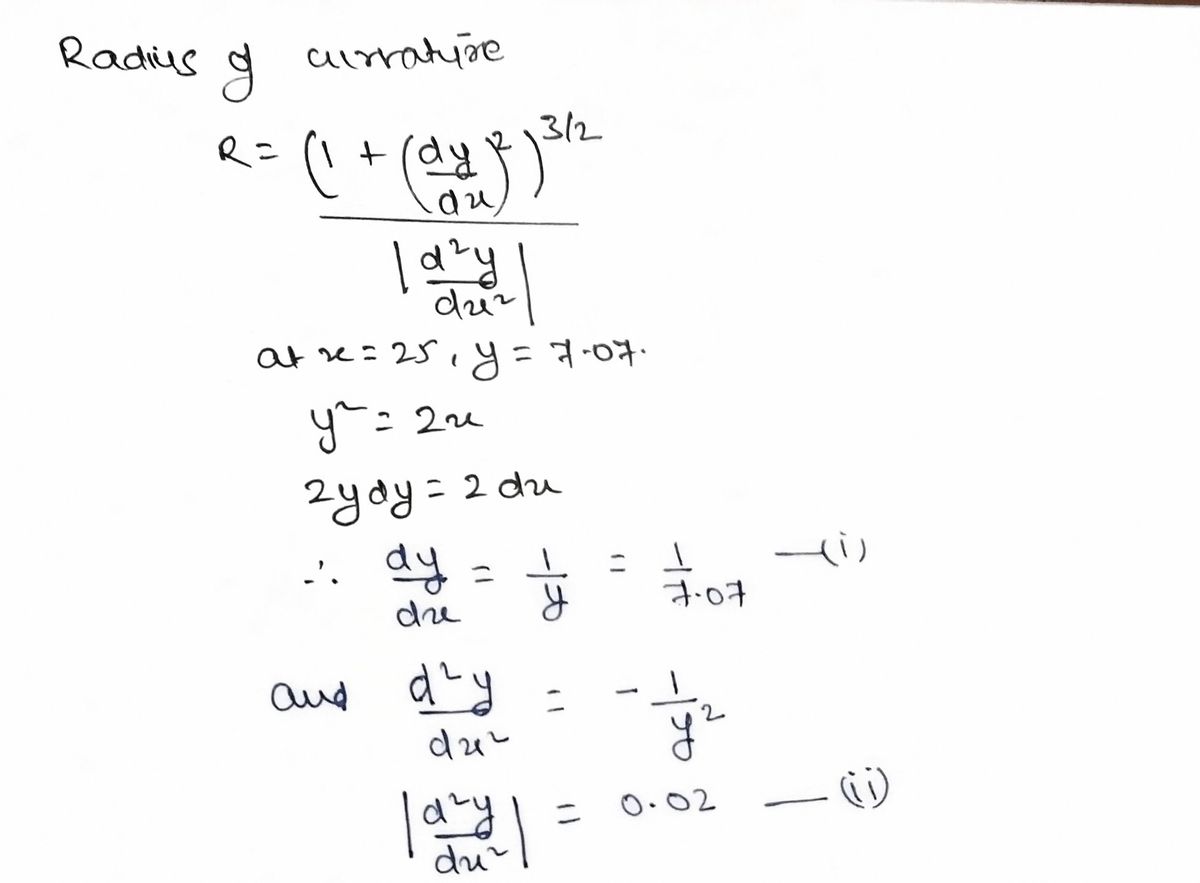 Radius of curvature
R = (1 + (dy/dx)²)^3/2 / |d²y/dx²|
at x = 25, y = 7.07.
y² = 2x
2ydy = 2 dx
∴ dy/dx = 1/y = 1/7.07 —(i)
and d²y/dx² = - 1/y²
|d²y/dx²| = 0.02 —(ii)